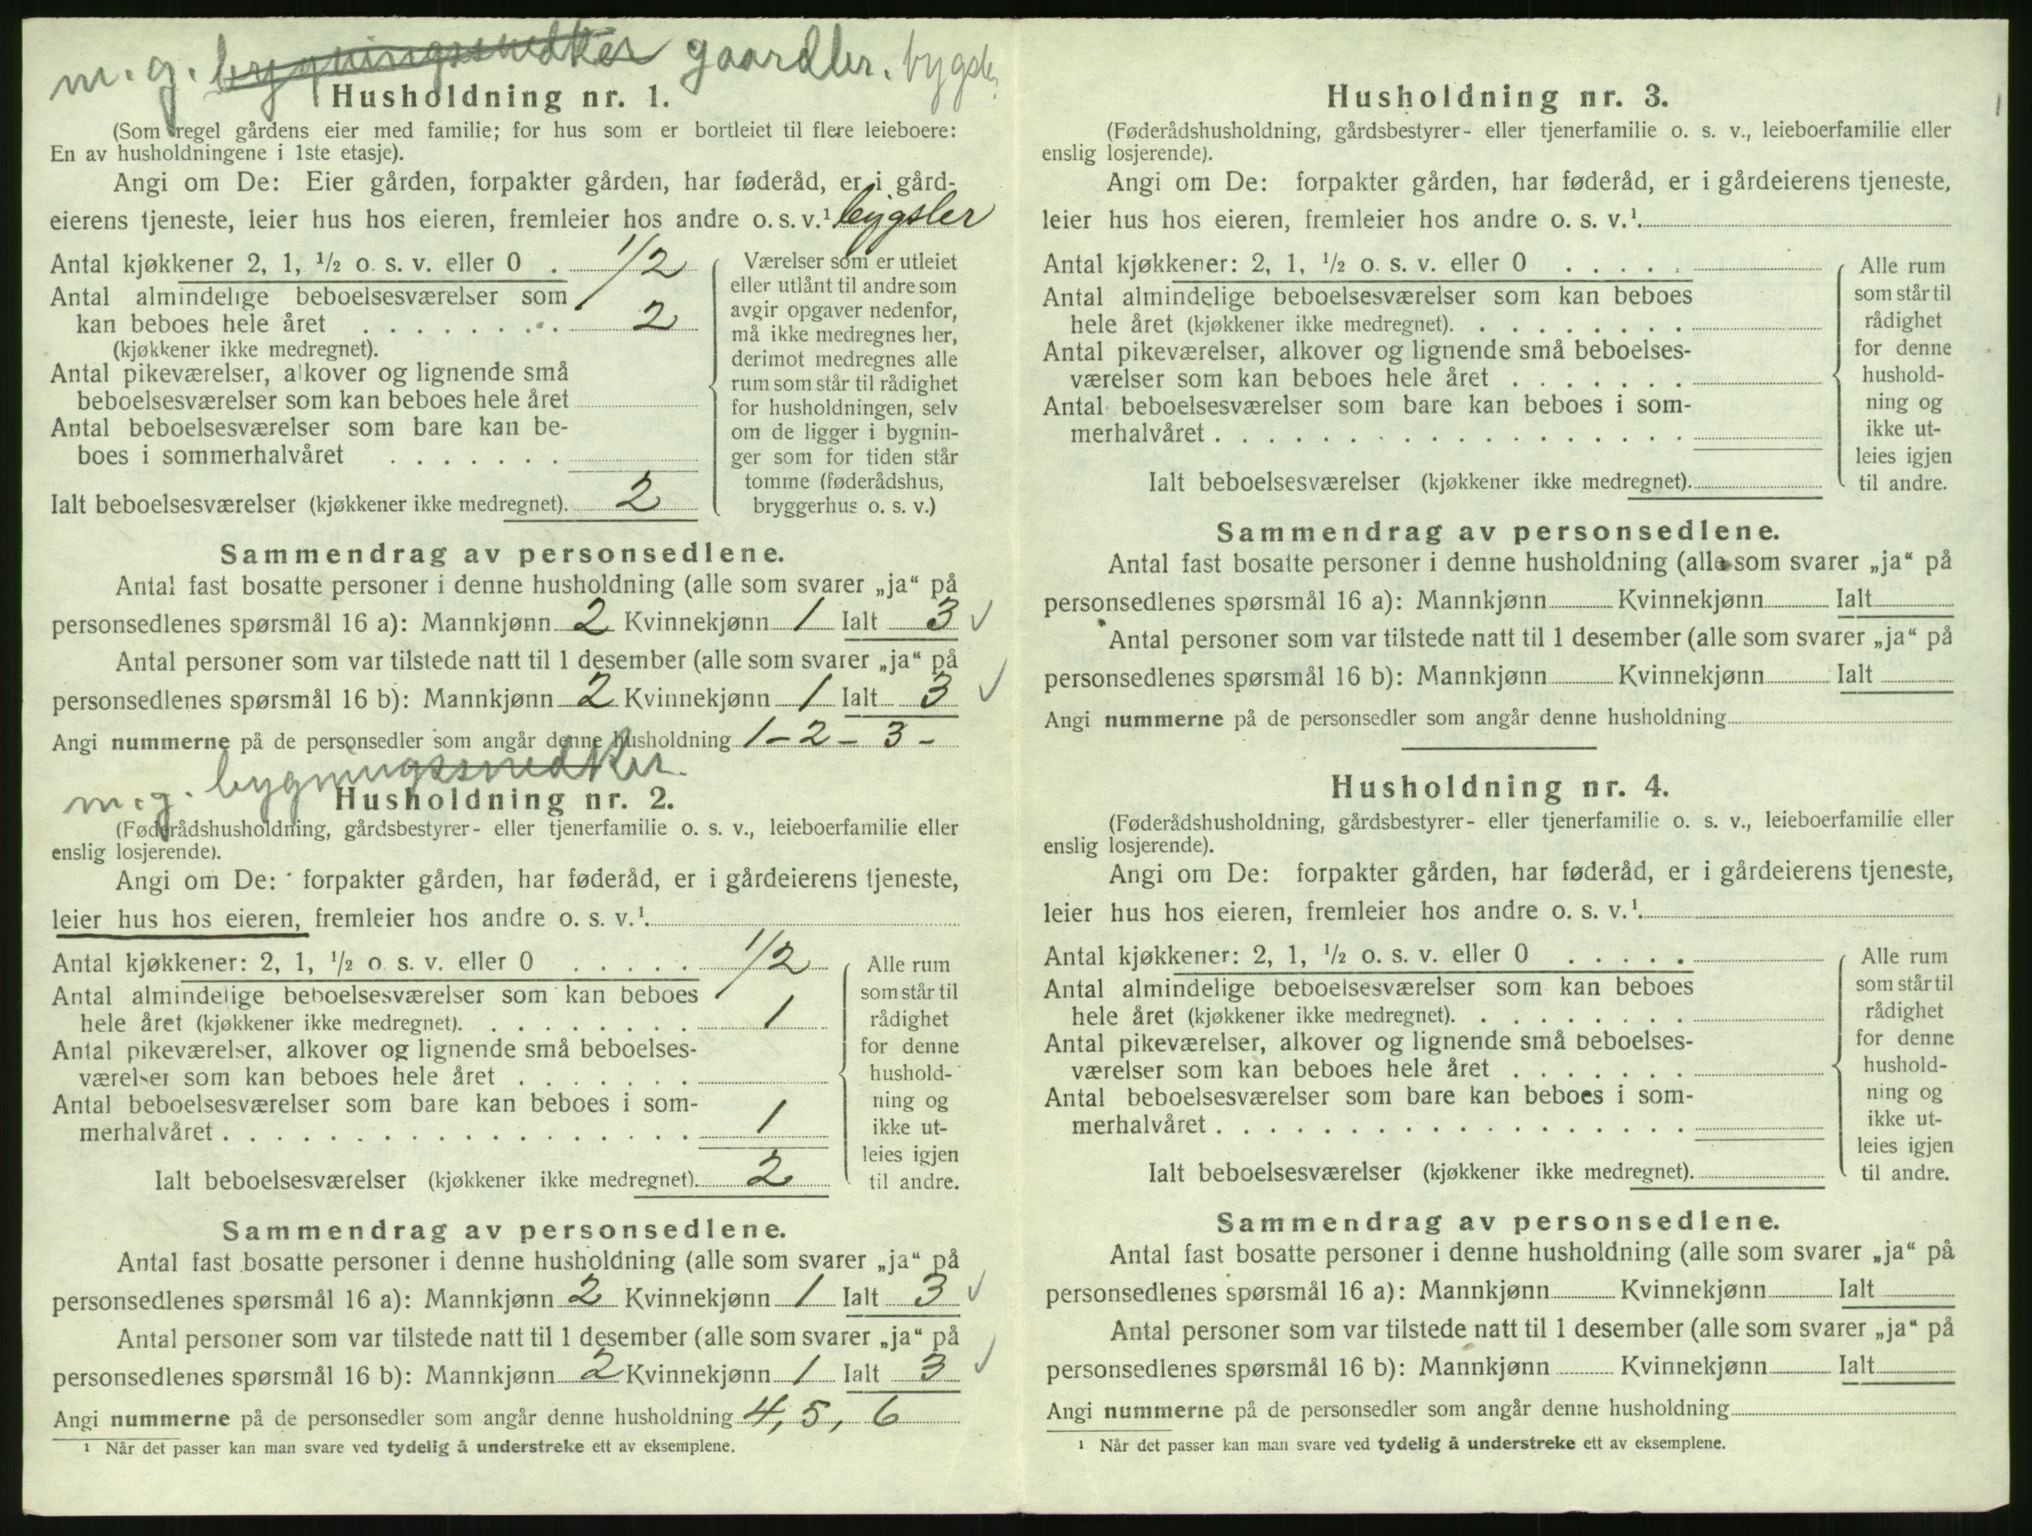 m. g. bygningssnedker gaardbr. bygsler
Husholdning nr. 1.
(Som regel gårdens eier med familie; for hus som er bortleiet til flere leieboere:
En av husholdningene i 1ste etasje).
Angi om De: Eier gården, forpakter gården, har føderåd, er i gård-
eierens tjeneste, leier hus hos eieren, fremleier hos andre o. s. v.¹ bygsler
Antal kjøkkener 2, 1, ½ o. s. v. eller 0 . 1/2
Antal almindelige beboelsesværelser som
kan beboes hele året . . . . . . . . 2
(kjøkkener ikke medregnet).
Antal pikeværelser, alkover og lignende små
beboelsesværelser som kan beboes hele året
Antal beboelsesværelser som bare kan be-
boes i sommerhalvåret . . . . . . .
Ialt beboelsesværelser (kjøkkener ikke medregnet). 2
Værelser som er utleiet
eller utlånt til andre som
avgir opgaver nedenfor,
må ikke medregnes her,
derimot medregnes alle
rum som står til rådighet
for husholdningen, selv
om de ligger i bygnin-
ger som for tiden står
tomme (føderådshus,
bryggerhus o. s. v.)
Sammendrag av personsedlene.
Antal fast bosatte personer i denne husholdning (alle som svarer „ja“ på
personsedlenes spørsmål 16 a): Mannkjønn 2 Kvinnekjønn 1 Ialt 3 ✓
Antal personer som var tilstede natt til 1 desember (alle som svarer „ja“ på
personsedlenes spørsmål 16 b): Mannkjønn 2 Kvinnekjønn 1 Ialt 3 ✓
Angi nummerne på de personsedler som angår denne husholdning 1 - 2 - 3 -
m. g. bygningssnedker.
Husholdning nr. 2.
(Føderådshusholdning, gårdsbestyrer- eller tjenerfamilie o. s. v., leieboerfamilie eller
enslig losjerende).
Angi om De: forpakter gården, har føderåd, er i gårdeierens tjeneste,
leier hus hos eieren, fremleier hos andre o. s. v.¹
Antal kjøkkener: 2, 1, ½ o. s. v. eller 0 . . . . . 1/2
Antal almindelige beboelsesværelser som kan beboes
hele året (kjøkkener ikke medregnet). . . . . . . . . 1
Antal pikeværelser, alkover og lignende små beboelses-
værelser som kan beboes hele året . . . . . . .
Antal beboelsesværelser som bare kan beboes i som-
merhalvåret . . . . . . . . . . . . . . . . . 1
Ialt beboelsesværelser (kjøkkener ikke medregnet). 2
Alle rum
som står til
rådighet
for denne
hushold-
ning og
ikke ut-
leies igjen
til andre.
Sammendrag av personsedlene.
Antal fast bosatte personer i denne husholdning (alle som svarer „ja“ på
personsedlenes spørsmål 16 a): Mannkjønn 2 Kvinnekjønn 1 Ialt 3 ✓
Antal personer som var tilstede natt til 1 desember (alle som svarer „ja“ på
personsedlenes spørsmål 16 b): Mannkjønn 2 Kvinnekjønn 1 Ialt 3 ✓
Angi nummerne på de personsedler som angår denne husholdning 4, 5, 6
¹ Når det passer kan man svare ved tydelig å understreke ett av eksemplene.
Husholdning nr. 3.
(Føderådshusholdning, gårdsbestyrer- eller tjenerfamilie o. s. v., leieboerfamilie eller
enslig losjerende).
Angi om De: forpakter gården, har føderåd, er i gårdeierens tjeneste,
leier hus hos eieren, fremleier hos andre o. s. v.¹
Antal kjøkkener: 2, 1, ½ o. s. v. eller 0 . . . . .
Antal almindelige beboelsesværelser som kan beboes
hele året (kjøkkener ikke medregnet). . . . . . . . .
Antal pikeværelser, alkover og lignende små beboelses-
værelser som kan beboes hele året . . . . . . .
Antal beboelsesværelser som bare kan beboes i som-
merhalvåret . . . . . . . . . . . . . . . . .
Ialt beboelsesværelser (kjøkkener ikke medregnet).
Alle rum
som står til
rådighet
for denne
hushold-
ning og
ikke ut-
leies igjen
til andre.
Sammendrag av personsedlene.
Antal fast bosatte personer i denne husholdning (alle som svarer „ja“ på
personsedlenes spørsmål 16 a): Mannkjønn Kvinnekjønn Ialt
Antal personer som var tilstede natt til 1 desember (alle som svarer „ja“ på
personsedlenes spørsmål 16 b): Mannkjønn Kvinnekjønn Ialt
Angi nummerne på de personsedler som angår denne husholdning
Husholdning nr. 4.
(Føderådshusholdning, gårdsbestyrer- eller tjenerfamilie o. s. v., leieboerfamilie eller
enslig losjerende).
Angi om De: forpakter gården, har føderåd, er i gårdeierens tjeneste,
leier hus hos eieren, fremleier hos andre o. s. v.¹
Antal kjøkkener: 2, 1, ½ o. s. v. eller 0 . . . . .
Antal almindelige beboelsesværelser som kan beboes
hele året (kjøkkener ikke medregnet). . . . . . . . .
Antal pikeværelser, alkover og lignende små beboelses-
værelser som kan beboes hele året . . . . . . .
Antal beboelsesværelser som bare kan beboes i som-
merhalvåret . . . . . . . . . . . . . . . . .
Ialt beboelsesværelser (kjøkkener ikke medregnet).
Alle rum
som står til
rådighet
for denne
hushold-
ning og
ikke ut-
leies igjen
til andre.
Sammendrag av personsedlene.
Antal fast bosatte personer i denne husholdning (alle som svarer „ja“ på
personsedlenes spørsmål 16 a): Mannkjønn Kvinnekjønn Ialt
Antal personer som var tilstede natt til 1 desember (alle som svarer „ja“ på
personsedlenes spørsmål 16 b): Mannkjønn Kvinnekjønn Ialt
Angi nummerne på de personsedler som angår denne husholdning
¹ Når det passer kan man svare ved tydelig å understreke ett av eksemplene.